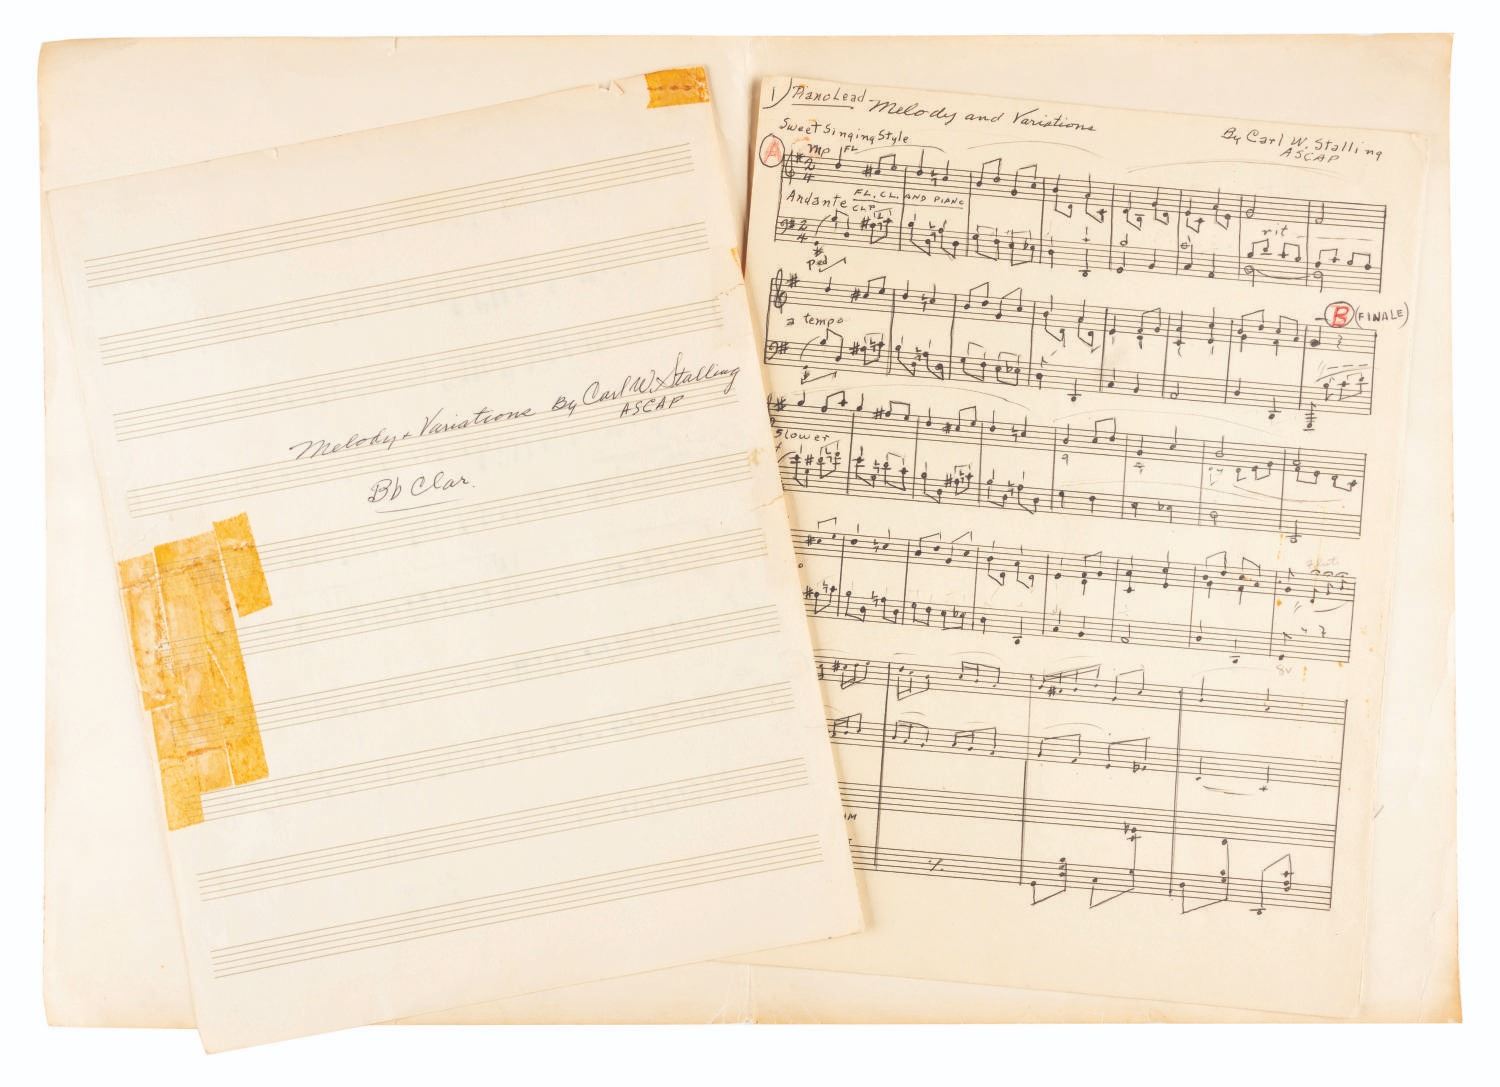 Melody + Variations By Carl W. Stalling
ASCAP
Bb Clar.
1) Piano Lead Melody and Variations
By Carl W. Stalling
ASCAP
Sweet Singing Style
A mp FL
Andante FL, CL, AND PIANO
CLP
rit
ped
B (FINALE)
a tempo
Slower
8v